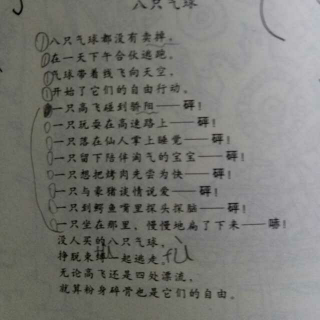 八只气球
八只气球都没有卖掉。
在一天下午合伙逃跑。
气球带着线飞向天空，
开始了它们的自由行动。
一只高飞碰到骄阳——砰！
一只玩耍在高速路上——砰！
一只落在仙人掌上睡觉——砰！
一只留下陪伴淘气的宝宝——砰！
一只想把烤肉先尝为快——砰！
一只与豪猪谈情说爱——砰！
一只到鳄鱼嘴里探头探脑——砰！
一只坐在那里，慢慢地扁了下来——嘭！
没人买的八只气球，
挣脱束缚一起逃走。
无论高飞还是四处漂流，
就算粉身碎骨也是它们的自由。